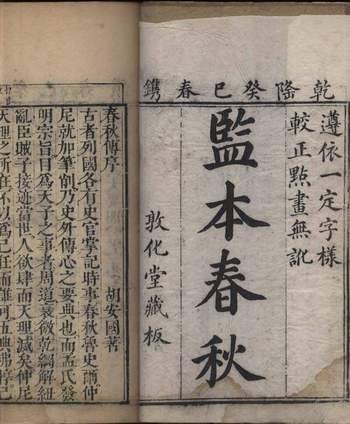 乾隆癸巳春鐫
遵依一定字樣
較正點畫無訛
監本春秋
敦化堂藏板
春秋傳序
胡安國著
古者列國各有史官掌記時事春秋魯史爾仲
尼就加筆削乃史外傳心之要典也而孟氏發
明宗旨目為天子之事者周道衰微乾綱解紐
亂臣賊子接迹當世人欲肆而天理滅矣仲尼
天理之所在不以為己任而誰可五典弗惇己